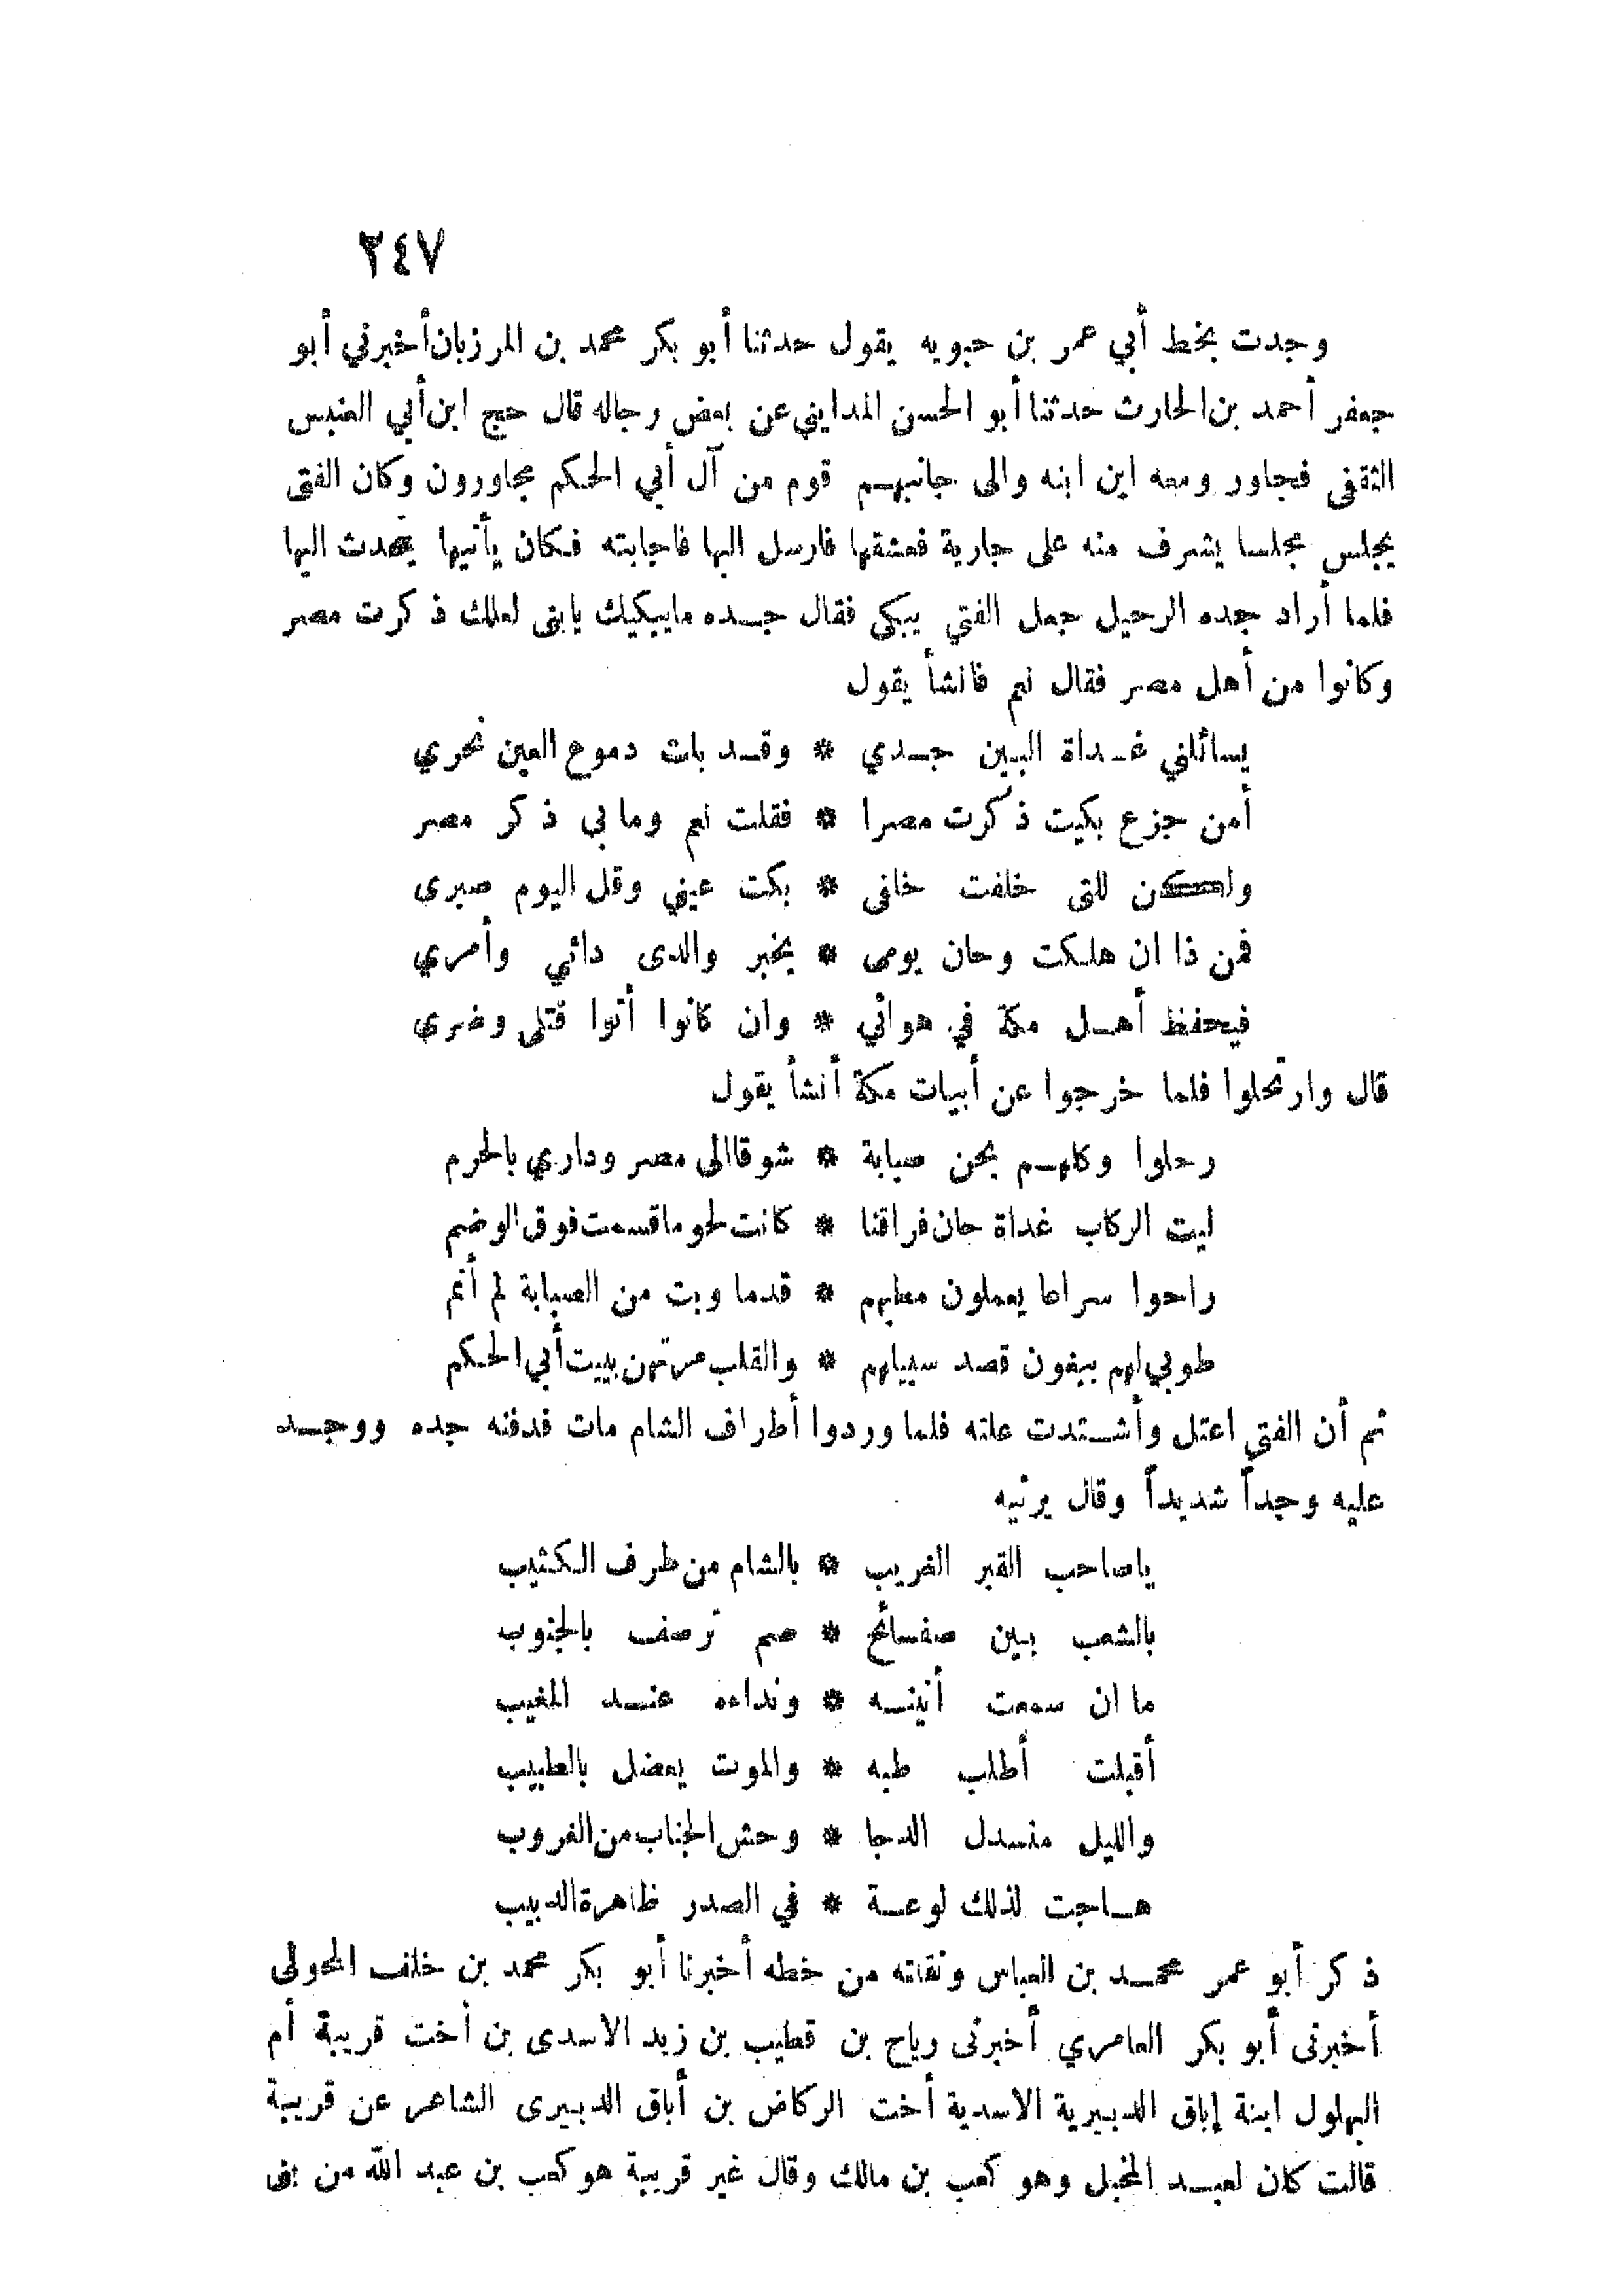 ٢٤٧
وجدت بخط أبي عمر بن حبويه يقول حدثنا أبو بكر محمد بن المرزبان أخبرني أبو
جعفر أحمد بن الحارث حدثنا أبو الحسن المدايني عن بعض رجاله قال حج ابن أبي العنبس
الثقفى فجاور ومعه ابن ابنه والى جانبهم قوم من آل أبي الحكم مجاورون وكان الفتى
يجلس مجلسا يشرف منه على جارية فعشقها فارسل اليها فاجابته فكان يأتيها يتحدث اليها
فلما أراد جده الرحيل جعل الفتي يبكى فقال جده مايبكيك يابنى لعلك ذكرت مصر
وكانوا من أهل مصر فقال نعم فانشأ يقول
يسائلني غداة البين جدي * وقد بلت دموع العين نحري
أمن جزع بكيت ذكرت مصرا * فقلت نعم وما بي ذكر مصر
ولكن للتى خلفت خلفى * بكت عيني وقل اليوم صبرى
فمن ذا ان هلكت وحان يومى * يخبر والدى دائي وأمري
فيحفظ أهل مكة في هوائي * وان كانوا أتوا قتلى وضرى
قال وارتحلوا فلما خرجوا عن أبيات مكة أنشأ يقول
رحلوا وكلهم يحن صبابة * شوقا الى مصر وداري بالحرم
ليت الركاب غداة حان فراقنا * كانت لحوما قسمت فوق الوضم
راحوا سراعا يعملون مطيهم * قدما وبت من الصبابة لم أنم
طوبي لهم يبغون قصد سبيلهم * والقلب مرتهن ببيت أبي الحكم
ثم أن الفتي اعتل وأشتدت علته فلما وردوا أطراف الشام مات فدفنه جده ووجد
عليه وجداً شديداً وقال يرثيه
ياصاحب القبر الغريب * بالشام من طرف الكثيب
بالشعب بين صفسائح * صم ترصف بالجنوب
ما ان سمعت أنينه * ونداءه عند المغيب
أقبلت أطلب طبه * والموت يعضل بالطبيب
والليل منسدل الدجا * وحش الجناب من الغروب
هاجت لذلك لوعة * في الصدر ظاهرة الدبيب
ذكر أبو عمر محمد بن العباس ونقلته من خطه أخبرنا أبو بكر محمد بن خلف المحولى
أخبرنى أبو بكر العامري أخبرنى رياح بن قطيب بن زيد الاسدى بن أخت قريبة أم
البهلول ابنة إباق الدبيرية الاسدية أخت الركاض بن أباق الدبيرى الشاعر عن قريبة
قالت كان لعبد المخبل وهو كعب بن مالك وقال غير قريبة هو كعب بن عبد الله من بنى